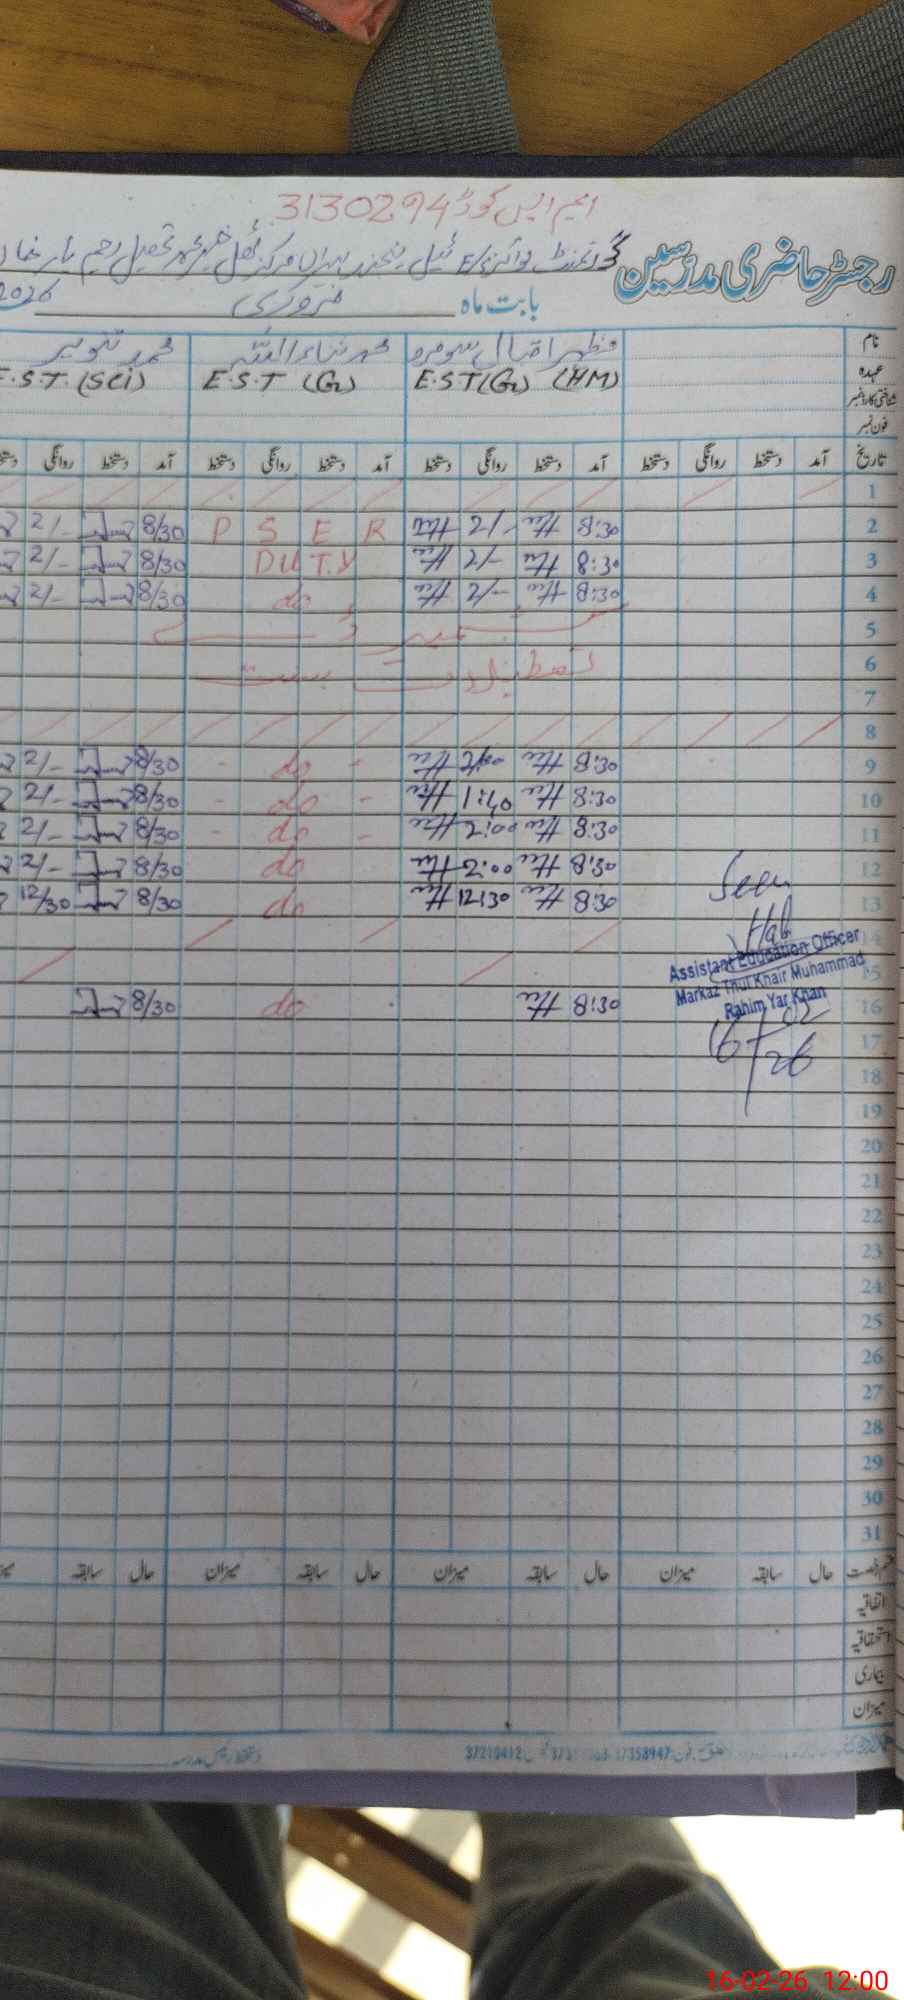 ایم ایس کوڈ 3130294
رجسٹر حاضری مدرسین گورنمنٹ بوائز E/S ٹیل مرکز تحصیل رحیم یار خان
بابت ماہ فروری 2026
نام مظہر اقبال سومرو محمد ثناء اللہ محمد تنویر
عہدہ E.S.T (G) (HM) E.S.T (G) E.S.T. (Sci)
شناختی کارڈ نمبر
فون نمبر
تاریخ آمد دستخط روانگی دستخط آمد دستخط روانگی دستخط آمد دستخط روانگی دستخط آمد دستخط روانگی
1
2 8:30 2/- P S E R 8/30 2/-
3 8:30 2/- DUTY 8/30 2/-
4 8:30 2/- do 8/30 2/-
5
6 تعطیلات بسنت
7
8
9 8:30 2:00 - do - 8/30 2/-
10 8:30 1:40 - do - 8/30 2/-
11 8:30 2:00 - do - 8/30 2/-
12 8:30 2:00 do 8/30 2/-
13 8:30 12:30 do 8/30 12/30
14
15
16 8:30 do 8/30
Seen
Assistant Education Officer
Markaz Thul Khair Muhammad
Rahim Yar Khan
16/02/26
17
18
19
20
21
22
23
24
25
26
27
28
29
30
31
قسم رخصت حال سابقہ میزان حال سابقہ میزان حال سابقہ میزان حال سابقہ
اتفاقیہ
استحقاقیہ
بیماری
میزان
دستخط رئیس مدرسہ
37358947 37210412
16-02-26 12:00